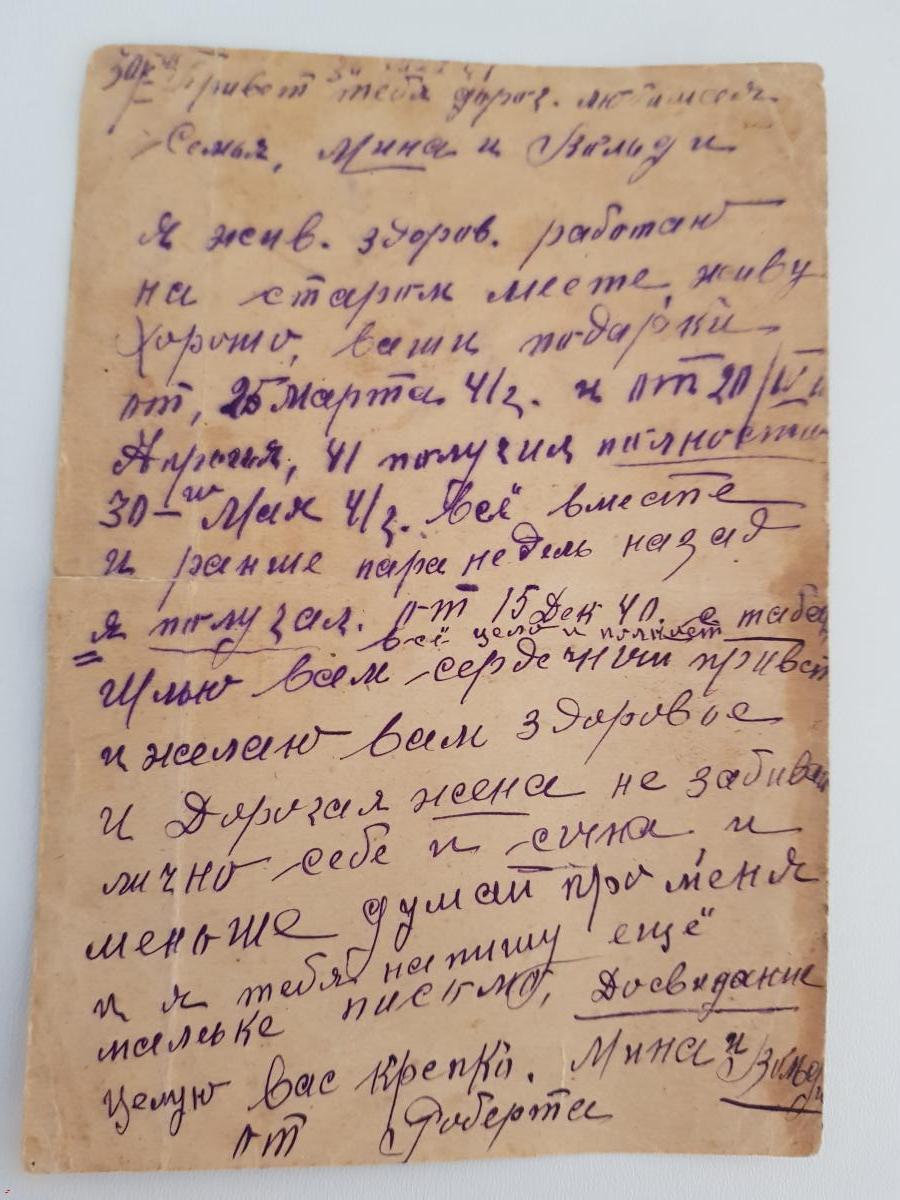 Привет тебя дорог. любимая
Семья, Мина и Вольди
Я жив. здоров. работаю
на старом месте, живу
хорошо, ваши подарки
от, 25 Марта 41г. и от 20/IV
Апреля, 41 получил полностю
30-го Мая 41г. всё вместе
и ранше пара недель назад
я получал. от 15 Дек 40. с табак
всё цело и полност
Шлю вам сердечний привет
и желаю вам здоровое
и Дорогая жена не забивай
лично себе и сина и
меньше думай про меня
и я тебя напишу ещё
мальке писмо, Досвидание
целую вас крепко. Мина и Вольди
от Роберта